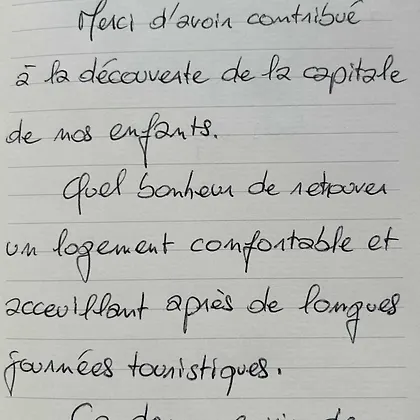 Merci d'avoir contribué
à la découverte de la capitale
de nos enfants.
Quel bonheur de retrouver
un logement confortable et
acceuillant après de longues
journées touristiques.